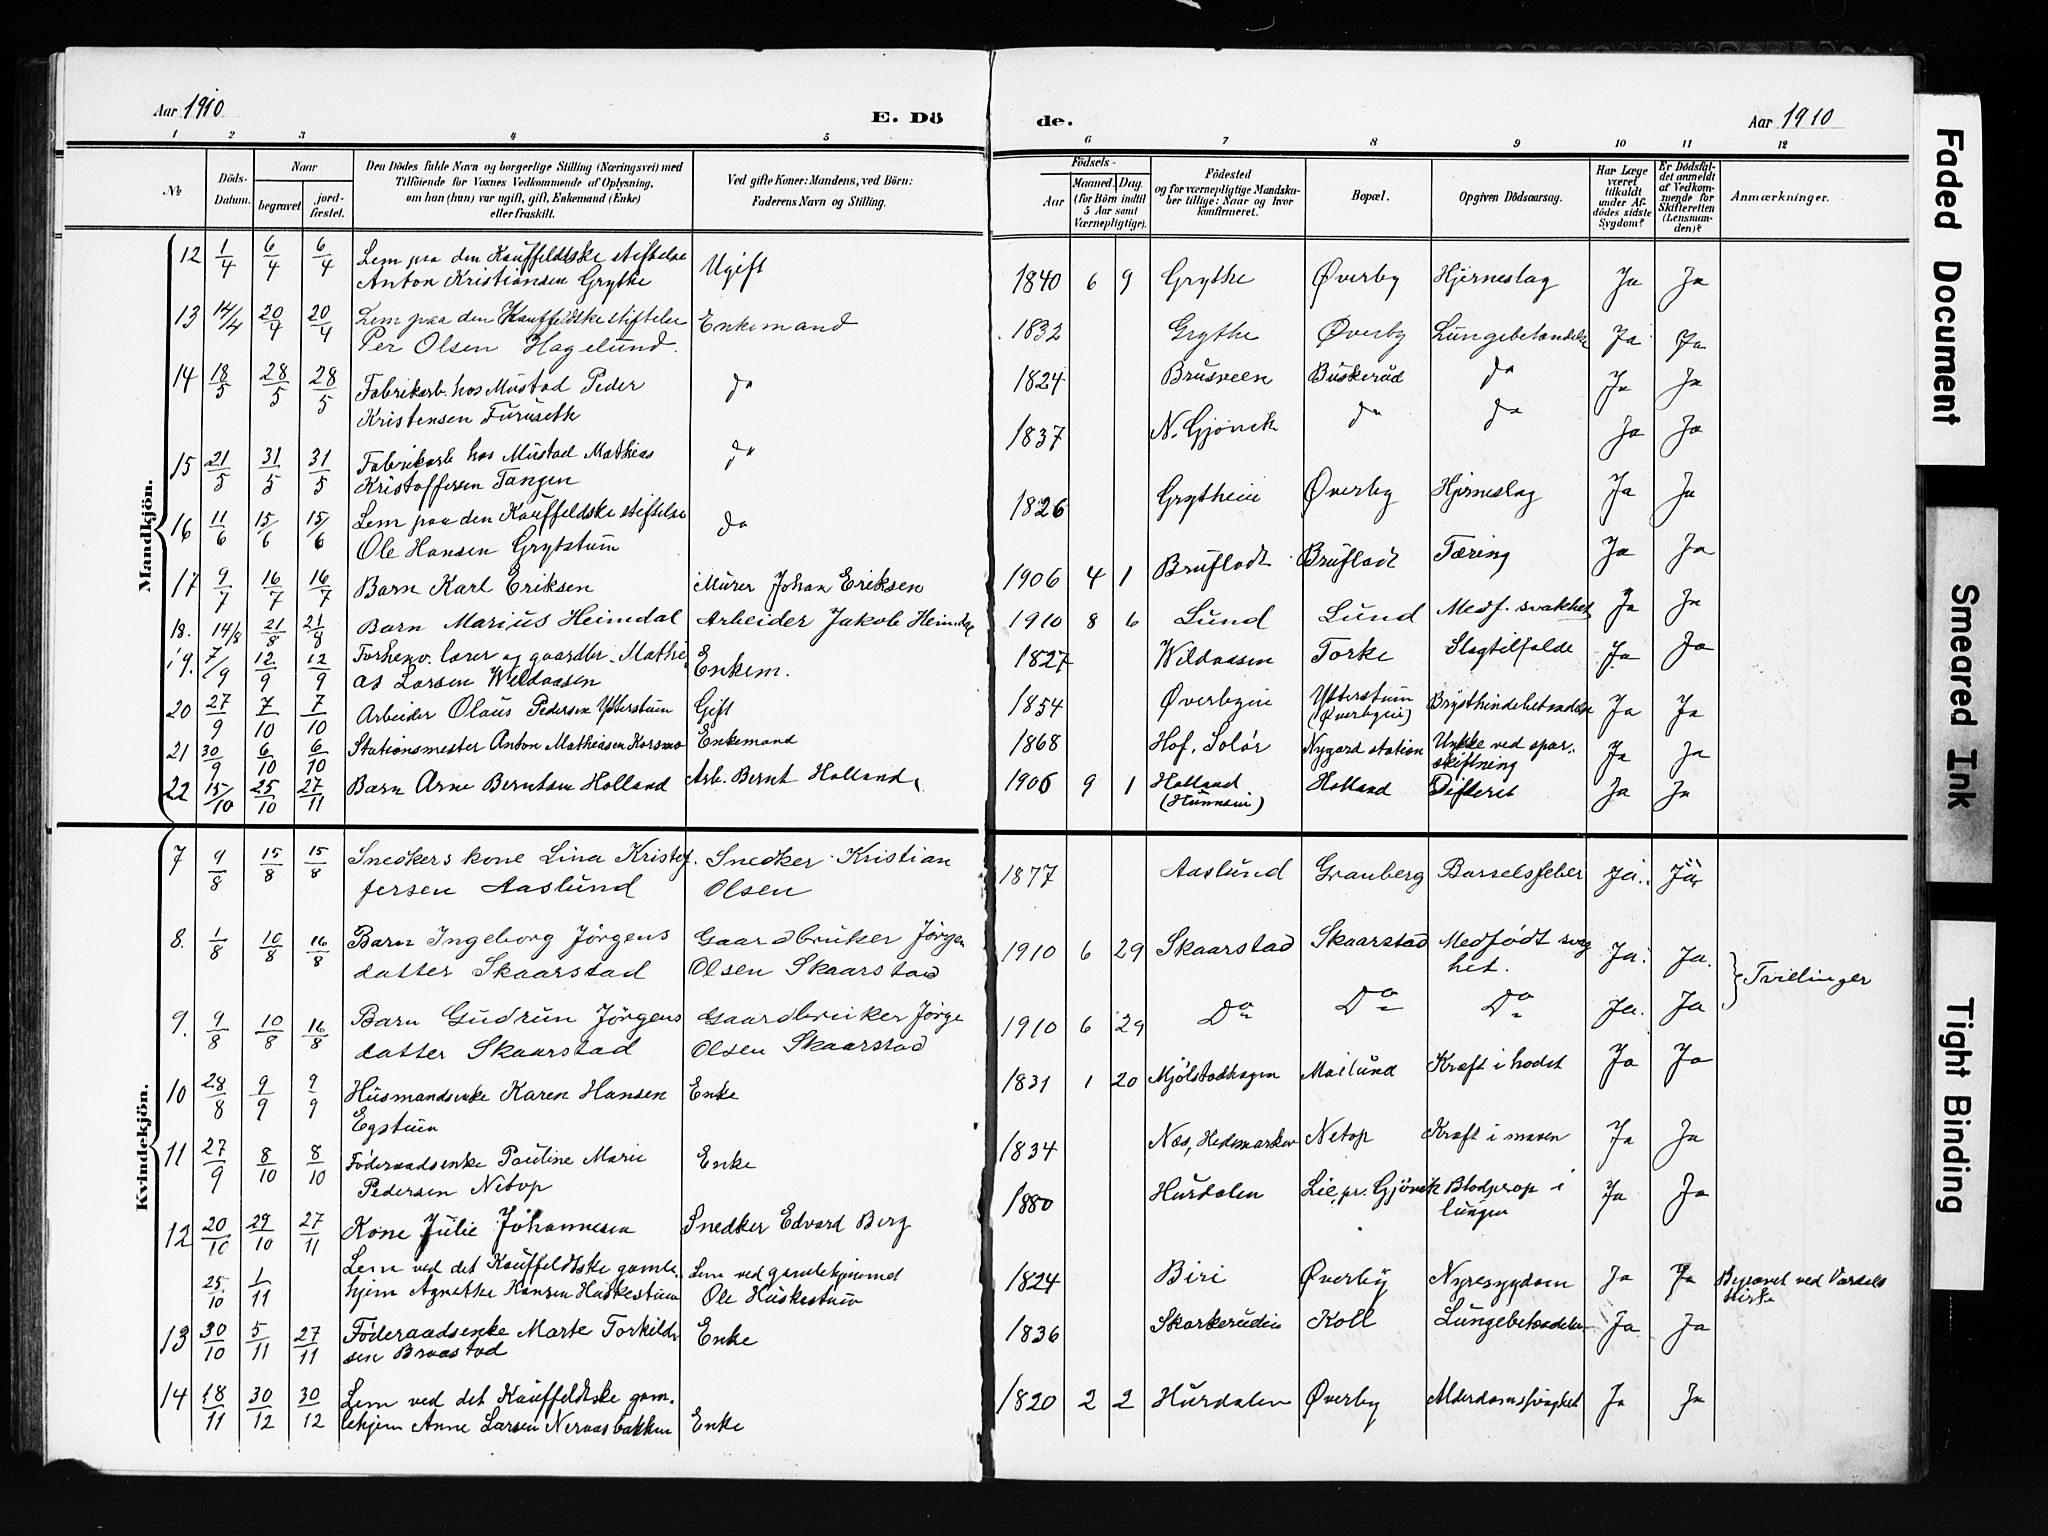 Aar 1910
E. Dö
de.
Aar 1910
1 2 3 4 5 6 7 8 9 10 11 12
№
Döds-Datum.
Naar
begravet jord-fæstet.
Den Dödes fulde Navn og borgerlige Stilling (Næringsvei) med
Tilföiende for Voxnes Vedkommende af Oplysning,
om han (hun) var ugift, gift, Enkemand (Enke)
eller fraskilt.
Ved gifte Koner: Mandens, ved Börn:
Faderens Navn og Stilling.
Födsels-
Aar
Maaned. Dag.
(for Börn indtil
5 Aar samt
Værnepligtige).
Födested
og for værnepligtige Mandska-
ber tillige: Naar og hvor
konfirmeret.
Bopæl.
Opgiven Dödsaarsag.
Har Læge
været
tilkaldt
under Af-
dödes sidste
Sygdom?
Er Dödsfal-
det anmeldt
af Vedkom-
mende for
Skifteretten
(Lensman-
den)?
Anmærkninger.
Mandkjön.
12 1/4 6/4 6/4 Lem paa den Kauffeldtske stiftelse
Anton Kristiansen Grythe Ugift 1840 6 9 Grythe Øverby Hjerneslag Ja Ja
13 14/4 20/4 20/4 Lem paa den Kauffeldtske stiftelse
Per Olsen Hagelund. Enkemand 1832 Grythe Øverby Lungebetændelse Ja Ja
14 18/5 28/5 28/5 Fabrikarb. hos Mustad Peder
Kristensen Furuseth do 1824 Brusveen Buskerud do Ja Ja
15 21/5 31/5 31/5 Fabrikarb hos Mustad Mathias
Kristoffersen Tangen do 1837 N. Gjøvik do do Ja Ja
16 11/6 15/6 15/6 Lem paa den Kauffeldske stiftelse
Ole Hansen Grytstuen do 1826 Grytheie Øverby Hjerneslag Ja Ja
17 9/7 16/7 16/7 Barn Karl Eriksen Murer Johan Eriksen 1906 4 1 Brufladt Brufladt Tæring Ja Ja
18. 14/8 21/8 21/8 Barn Marius Heimdal Arbeider Jakob Heimdal 1910 8 6 Lund Lund Medf. svakhet Ja Ja
19. 7/9 12/9 12/9 Forhenv. lærer og gaardbr. Mathi
as Larsen Wildaasen Enkem. 1827 Wildaasen Torke Slagtilfælde Ja Ja
20 27/9 7/10 7/10 Arbeider Olaus Pedersen Ytterstuen Gift 1854 Øverbyeie Ytterstuen
(Øverbyeie) Brysthindebetændelse Ja Ja
21 30/9 6/10 6/10 Stationsmester Anton Mathiasen Korsmo Enkemand 1868 Hof, Solør Nygard station Ulykke ved spor-
skiftning Ja Ja
22 15/10 25/10 27/11 Barn Arne Berntsen Holland Arb. Bernt Holland 1906 9 1 Holland
(Hunneie) Holland Difterit Ja Ja
Kvindekjön.
7 9/8 15/8 15/8 Snedkers kone Lina Kristof
fersen Aaslund Snedker Kristian
Olsen 1877 Aaslund Granberg Barselsfeber Ja. Ja
8. 1/8 10/8 16/8 Barn Ingeborg Jørgens
datter Skaarstad Gaardbruker Jørgen
Olsen Skaarstad 1910 6 29 Skaarstad Skaarstad Medfødt svag
het. Ja. Ja. } Tvillinger
9. 9/8 10/8 16/8 Barn Gudrun Jørgens
datter Skaarstad Gaardbruker Jørge
Olsen Skaarstad 1910 6 29 Do Do Do Ja. Ja
10 28/8 9/9 9/9 Husmandsenke Karen Hansen
Egstuen Enke 1831 1 20 Mjølstadhagen Mailund Kræft i hodet Ja Ja
11 27/9 8/10 8/10 Föderaadsenke Pauline Marie
Pedersen Netop Enke 1834 Næs, Hedemarken Netop Kræft i maven Ja Ja
12 20/10 29/10 27/11 Kone Julie Johannesen Snedker Edvard Berg 1880 Hurdalen Lie, pr. Gjövik Blodprop i
lungen Ja Ja
25/10 1/11 Lem ved det Kauffeldtske gamle-
hjem Agnethe Hansen Huskestuen Lem ved gamlehjemmet
Ole Huskestuen 1824 Biri Øverby Nyresygdom Ja Ja Begravet ved Vardals
kirke
13 30/10 5/11 27/11 Föderaadsenke Marte Torkild-
sen Braastad Enke 1836 Skarkerudeie Koll Lungebetændelse Ja Ja
14 18/11 30/12 30/12 Lem ved det Kauffeldtske gam-
lehjem Anne Larsen Neraasbakken Enke 1820 2 2 Hurdalen Øverby Alderdomssvaghet Ja Ja
Faded Document
Smeared Ink
Tight Binding